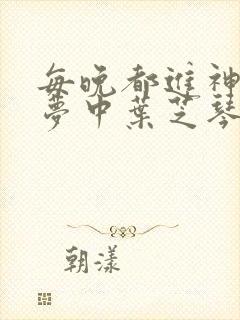 每晚都进神
夢中葉芝琴
朝漾